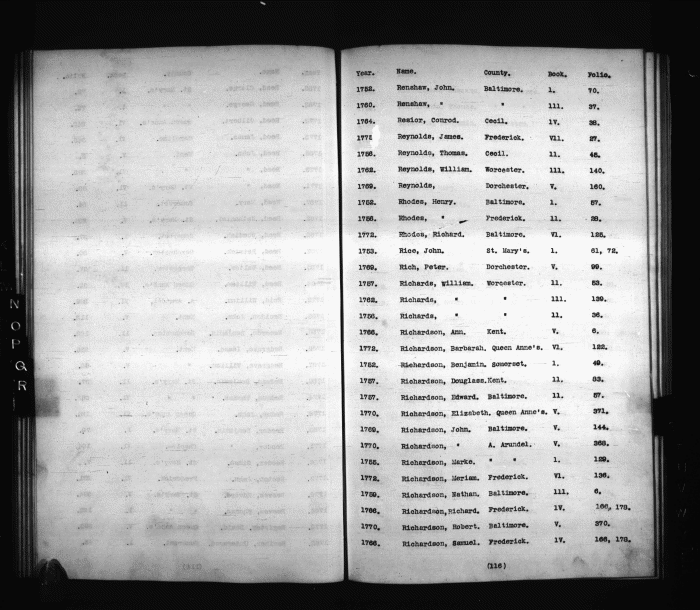 Year. Name. County. Book. Folio.
1752. Renshaw, John. Baltimore. 1. 70.
1760. Renshaw, " " 111. 37.
1764. Rezior, Conrod. Cecil. 1V. 38.
1775 Reynolds, James. Frederick. V11. 27.
1756. Reynolds, Thomas. Cecil. 11. 46.
1762. Reynolds, William. Worcester. 111. 140.
1769. Reynolds, Dorchester. V. 160.
1752. Rhodes, Henry. Baltimore. 1. 57.
1756. Rhodes, " Frederick. 11. 28.
1772. Rhodes, Richard. Baltimore. V1. 125.
1753. Rice, John. St. Mary's. 1. 61, 72.
1769. Rich, Peter. Dorchester. V. 99.
1757. Richards, William. Worcester. 11. 53.
1762. Richards, " " 111. 139.
1756. Richards, " " 11. 36.
1766. Richardson, Ann. Kent. V. 6.
1772. Richardson, Barbarah. Queen Anne's. V1. 122.
1752. Richardson, Benjamin. Somerset. 1. 49.
1757. Richardson, Douglass. Kent. 11. 83.
1757. Richardson, Edward. Baltimore. 11. 57.
1770. Richardson, Elizabeth. Queen Anne's. V. 371.
1769. Richardson, John. Baltimore. V. 144.
1770. Richardson, " A. Arundel. V. 368.
1755. Richardson, Marke. " " 1. 129.
1772. Richardson, Meriam. Frederick. V1. 136.
1759. Richardson, Nathan. Baltimore. 111. 6.
1766. Richardson,Richard. Frederick. 1V. 166, 178.
1770. Richardson, Robert. Baltimore. V. 370.
1766. Richardson, Samuel. Frederick. 1V. 166, 178.
(116)
N
O
P
Q
R